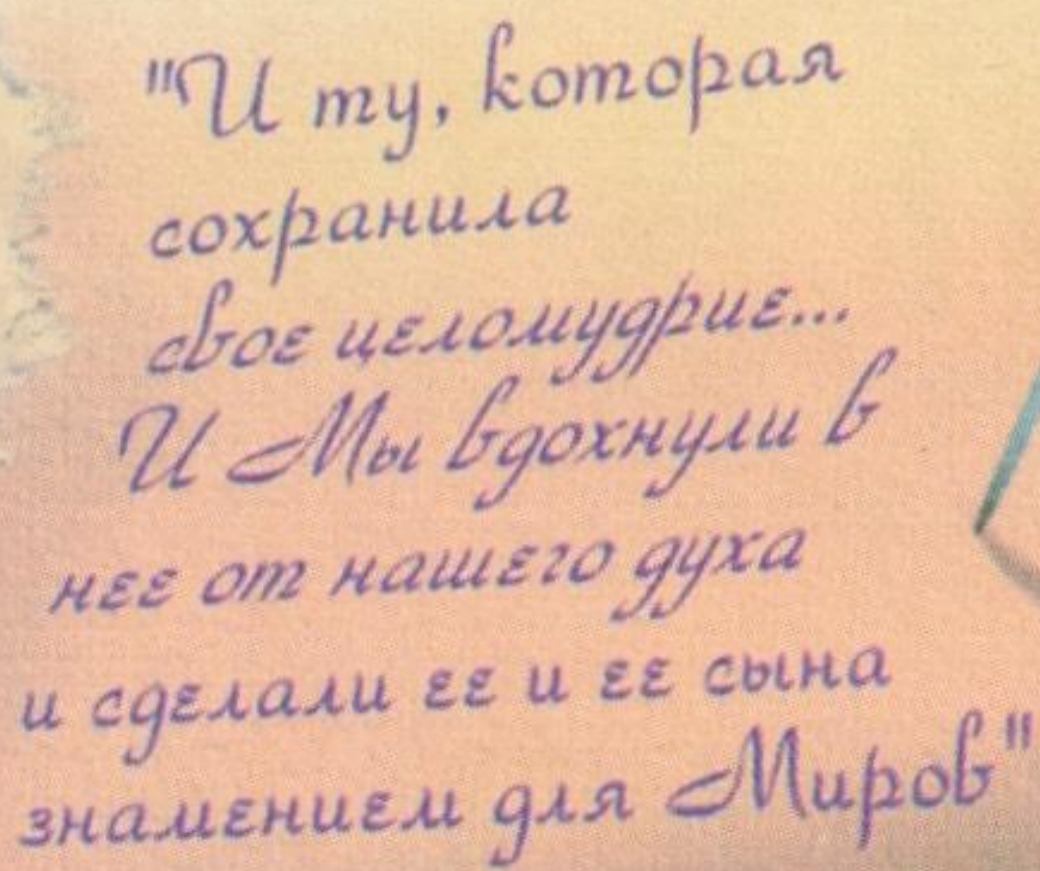 "И ту, которая
сохранила
свое целомудрие...
И Мы вдохнули в
нее от нашего духа
и сделали ее и ее сына
знамением для Миров"